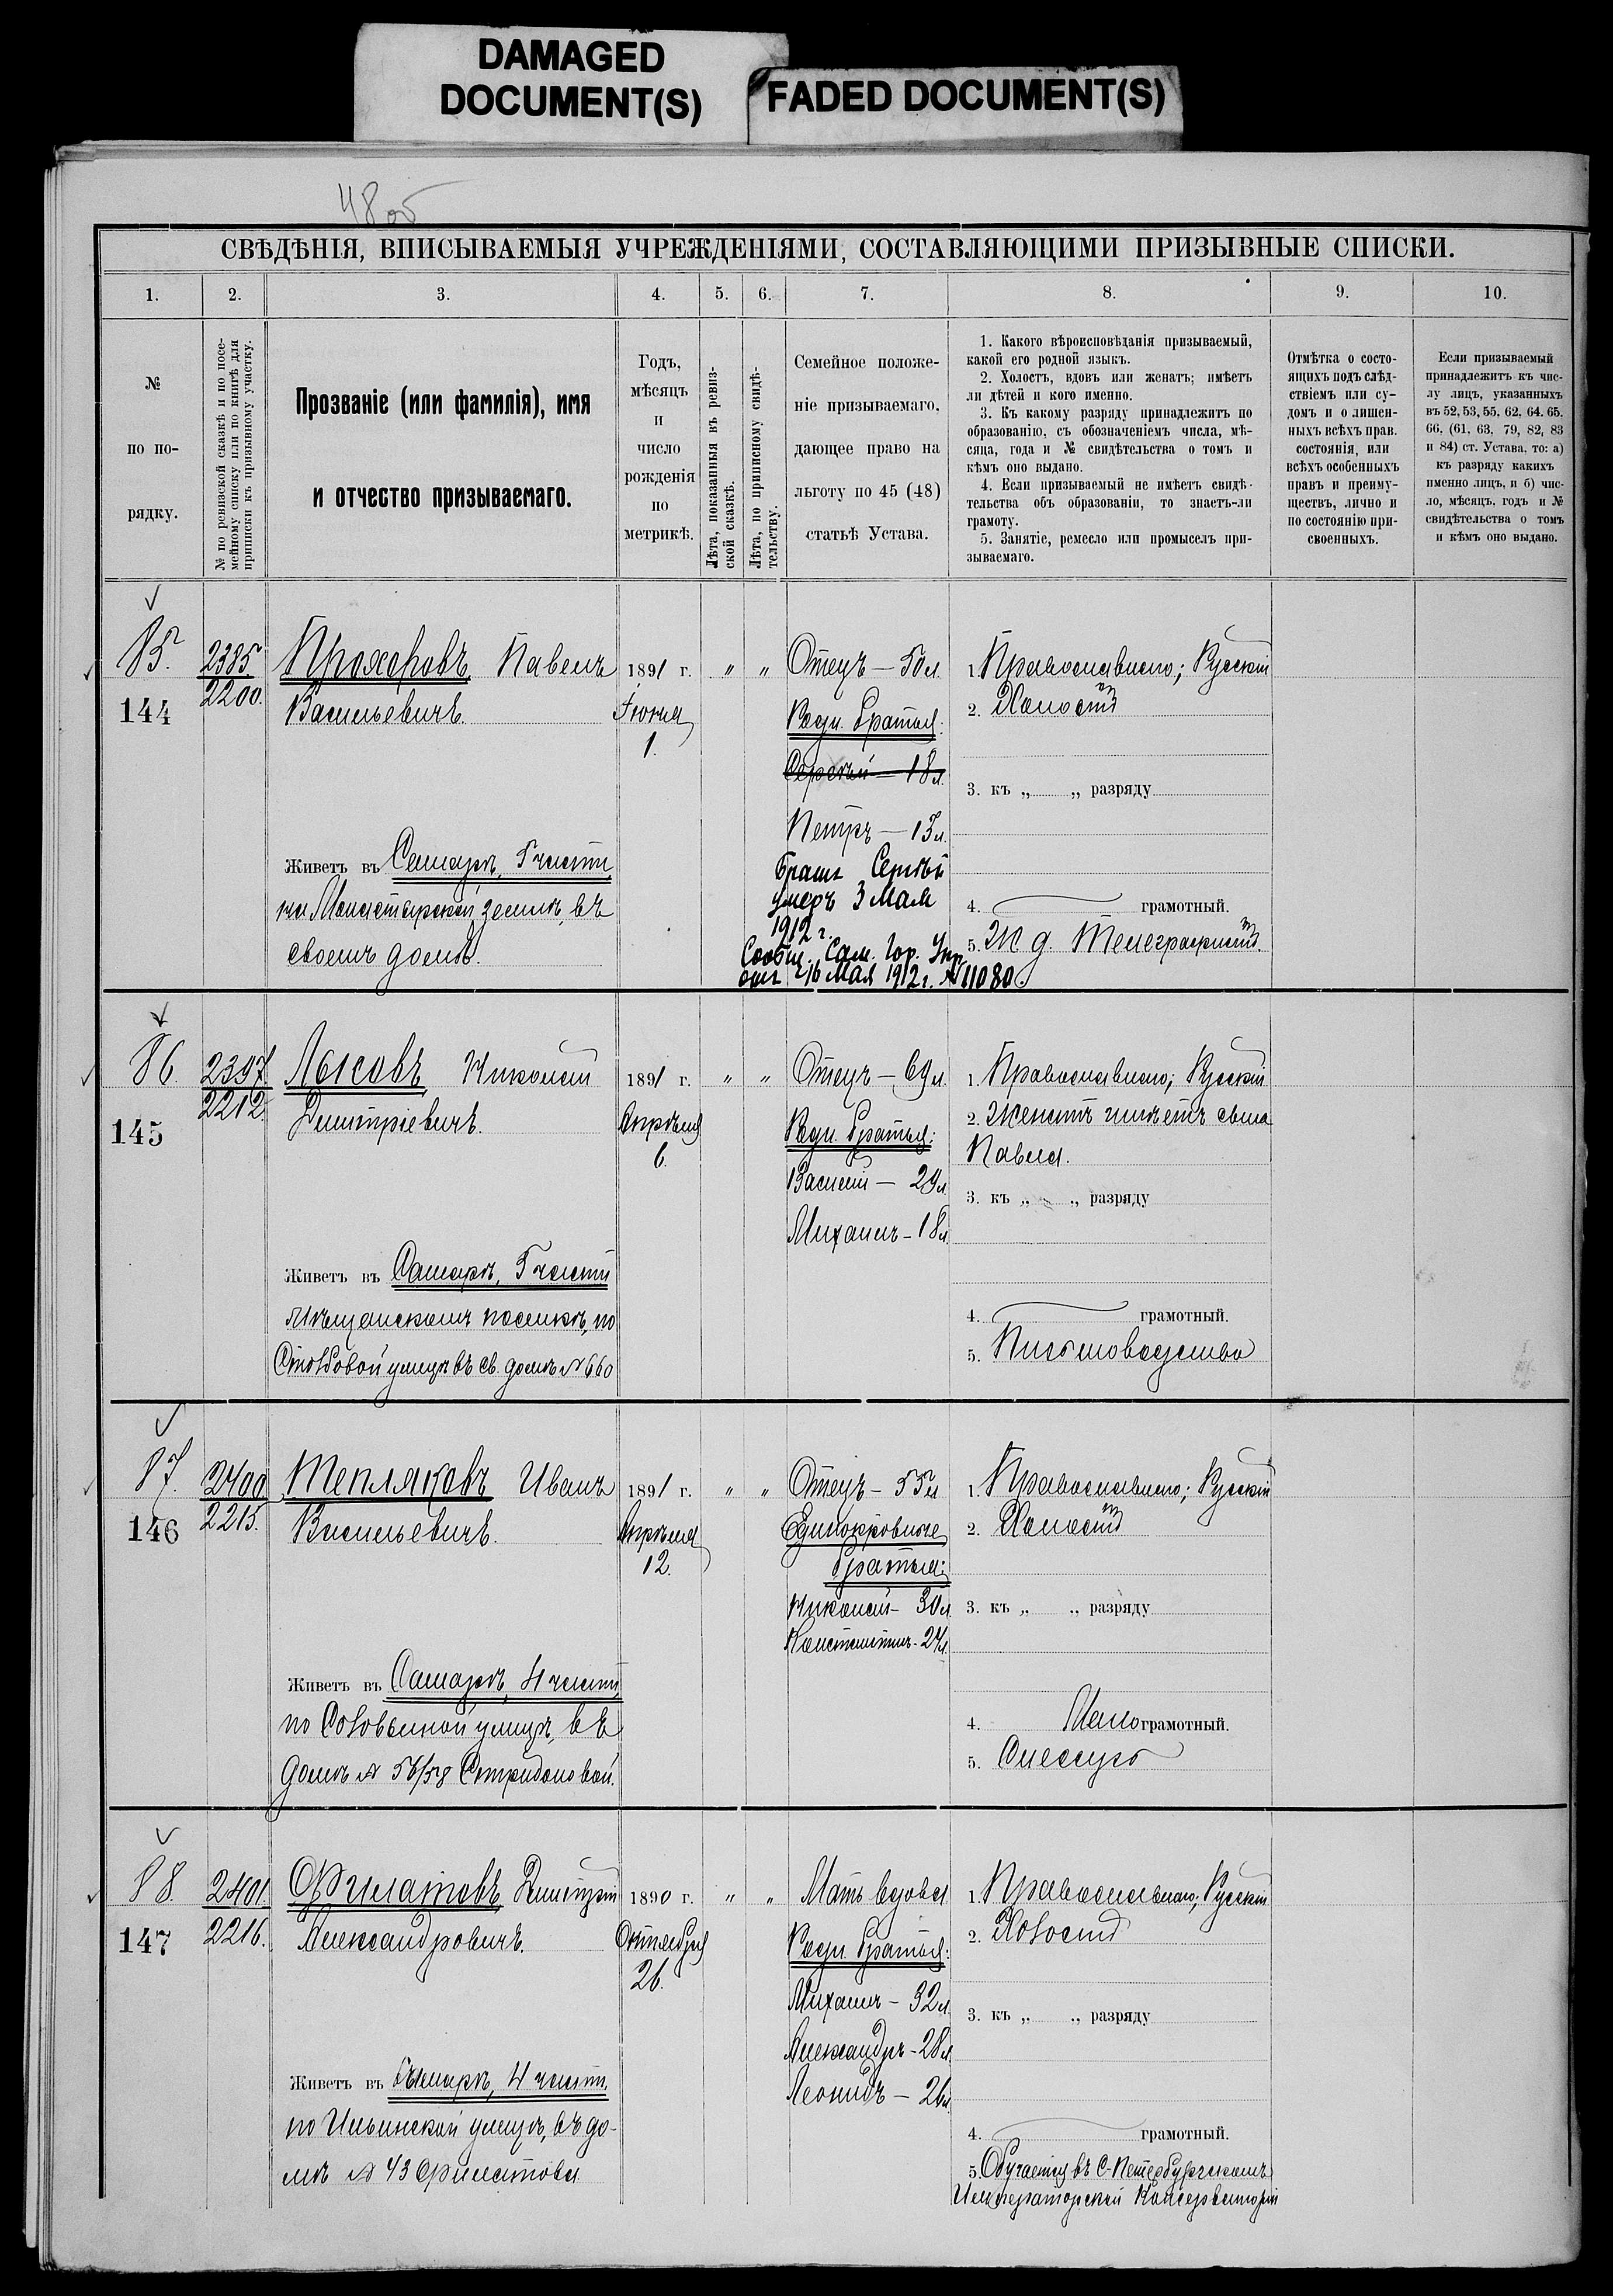 DAMAGED
DOCUMENT(S)
FADED DOCUMENT(S)
48 об
СВѢДѢНІЯ, ВПИСЫВАЕМЫЯ УЧРЕЖДЕНІЯМИ, СОСТАВЛЯЮЩИМИ ПРИЗЫВНЫЕ СПИСКИ.
1. 2. 3. 4. 5. 6. 7. 8. 9. 10.
№
по по-
рядку.
№ по ревизской сказкѣ и по посе-
мейному списку или по книгѣ для
приписки къ призывному участку.
Прозваніе (или фамилія), имя
и отчество призываемаго.
Годъ,
мѣсяцъ
и
число
рожденія
по
метрикѣ.
Лѣта, показанныя въ ревиз-
ской сказкѣ.
Лѣта, по приписному свидѣ-
тельству.
Семейное положе-
ніе призываемаго,
дающее право на
льготу по 45 (48)
статьѣ Устава.
1. Какого вѣроисповѣданія призываемый,
какой его родной языкъ.
2. Холостъ, вдовъ или женатъ; имѣетъ
ли дѣтей и кого именно.
3. Къ какому разряду принадлежитъ по
образованію, съ обозначеніемъ числа, мѣ-
сяца, года и № свидѣтельства о томъ и
кѣмъ оно выдано.
4. Если призываемый не имѣетъ свидѣ-
тельства объ образованіи, то знаетъ-ли
грамоту.
5. Занятіе, ремесло или промыселъ при-
зываемаго.
Отмѣтка о состо-
ящихъ подъ слѣд-
ствіемъ или су-
домъ и о лишен-
ныхъ всѣхъ прав.
состоянія, или
всѣхъ особенныхъ
правъ и преиму-
ществъ, лично и
по состоянію при-
своенныхъ.
Если призываемый
принадлежитъ къ чис-
лу лицъ, указанныхъ
въ 52, 53, 55, 62, 64. 65,
66, (61, 63, 79, 82, 83
и 84) ст. Устава, то: а)
къ разряду какихъ
именно лицъ, и б) чис-
ло, мѣсяцъ, годъ и №
свидѣтельства о томъ
и кѣмъ оно выдано.
85.
144
2385.
2200.
Прохоровъ Павелъ
Васильевичъ.
Живетъ въ Самарѣ, 5 части,
на Монастырской землѣ, въ
своемъ домѣ.
1891 г.
Іюня
1.
„ „
Отецъ — 50 л.
Родн. братья:
Сергѣй — 18 л.
Петръ — 13 л.
Братъ Сергѣй
умеръ 3 Мая
1912 г.
Сообщ. Сам. Гор. Упр.
отъ 16 Мая 1912 г. № 11080.
1. Православнаго; Русскій
2. Холостъ
3. къ „ „ разряду
4. грамотный.
5. Ж. д. Телеграфистъ.
86.
145
2397
2212.
Лысовъ Николай
Димитріевичъ.
Живетъ въ Самарѣ, 5 части
Мѣщанскомъ поселкѣ, по
Столбовой улицѣ въ св. домѣ № 660
1891 г.
Апрѣля
6.
„ „
Отецъ — 69 л.
Родн. братья:
Василій — 29 л.
Михаилъ — 18 л.
1. Православнаго; Русскій
2. Женатъ имѣетъ сына
Павла.
3. къ „ „ разряду
4. грамотный.
5. Письмоводство
87.
146
2400.
2215.
Тепляковъ Иванъ
Васильевичъ.
Живетъ въ Самарѣ, 4 части,
по Соловьиной улицѣ, въ
домѣ № 56/58 Спиридоновой.
1891 г.
Апрѣля
12.
„ „
Отецъ — 55 л.
Единокровные
братья:
Николай — 30 л.
Константинъ — 24 л.
1. Православнаго; Русскій
2. Холостъ
3. къ „ „ разряду
4. Мало грамотный.
5. Слесарь
88.
147
2401.
2216.
Филатовъ Димитрій
Александровичъ.
Живетъ въ Самарѣ, 4 части,
по Ильинской улицѣ, въ до-
мѣ № 43 Филатова
1890 г.
Октября
26.
„ „
Мать вдова
Родн. братья:
Михаилъ — 32 л.
Александръ — 28 л.
Леонидъ — 26 л.
1. Православнаго; Русскій
2. Холостъ
3. къ „ „ разряду
4. грамотный.
5. Обучается въ С-Петербургской
Императорской Консерваторіи